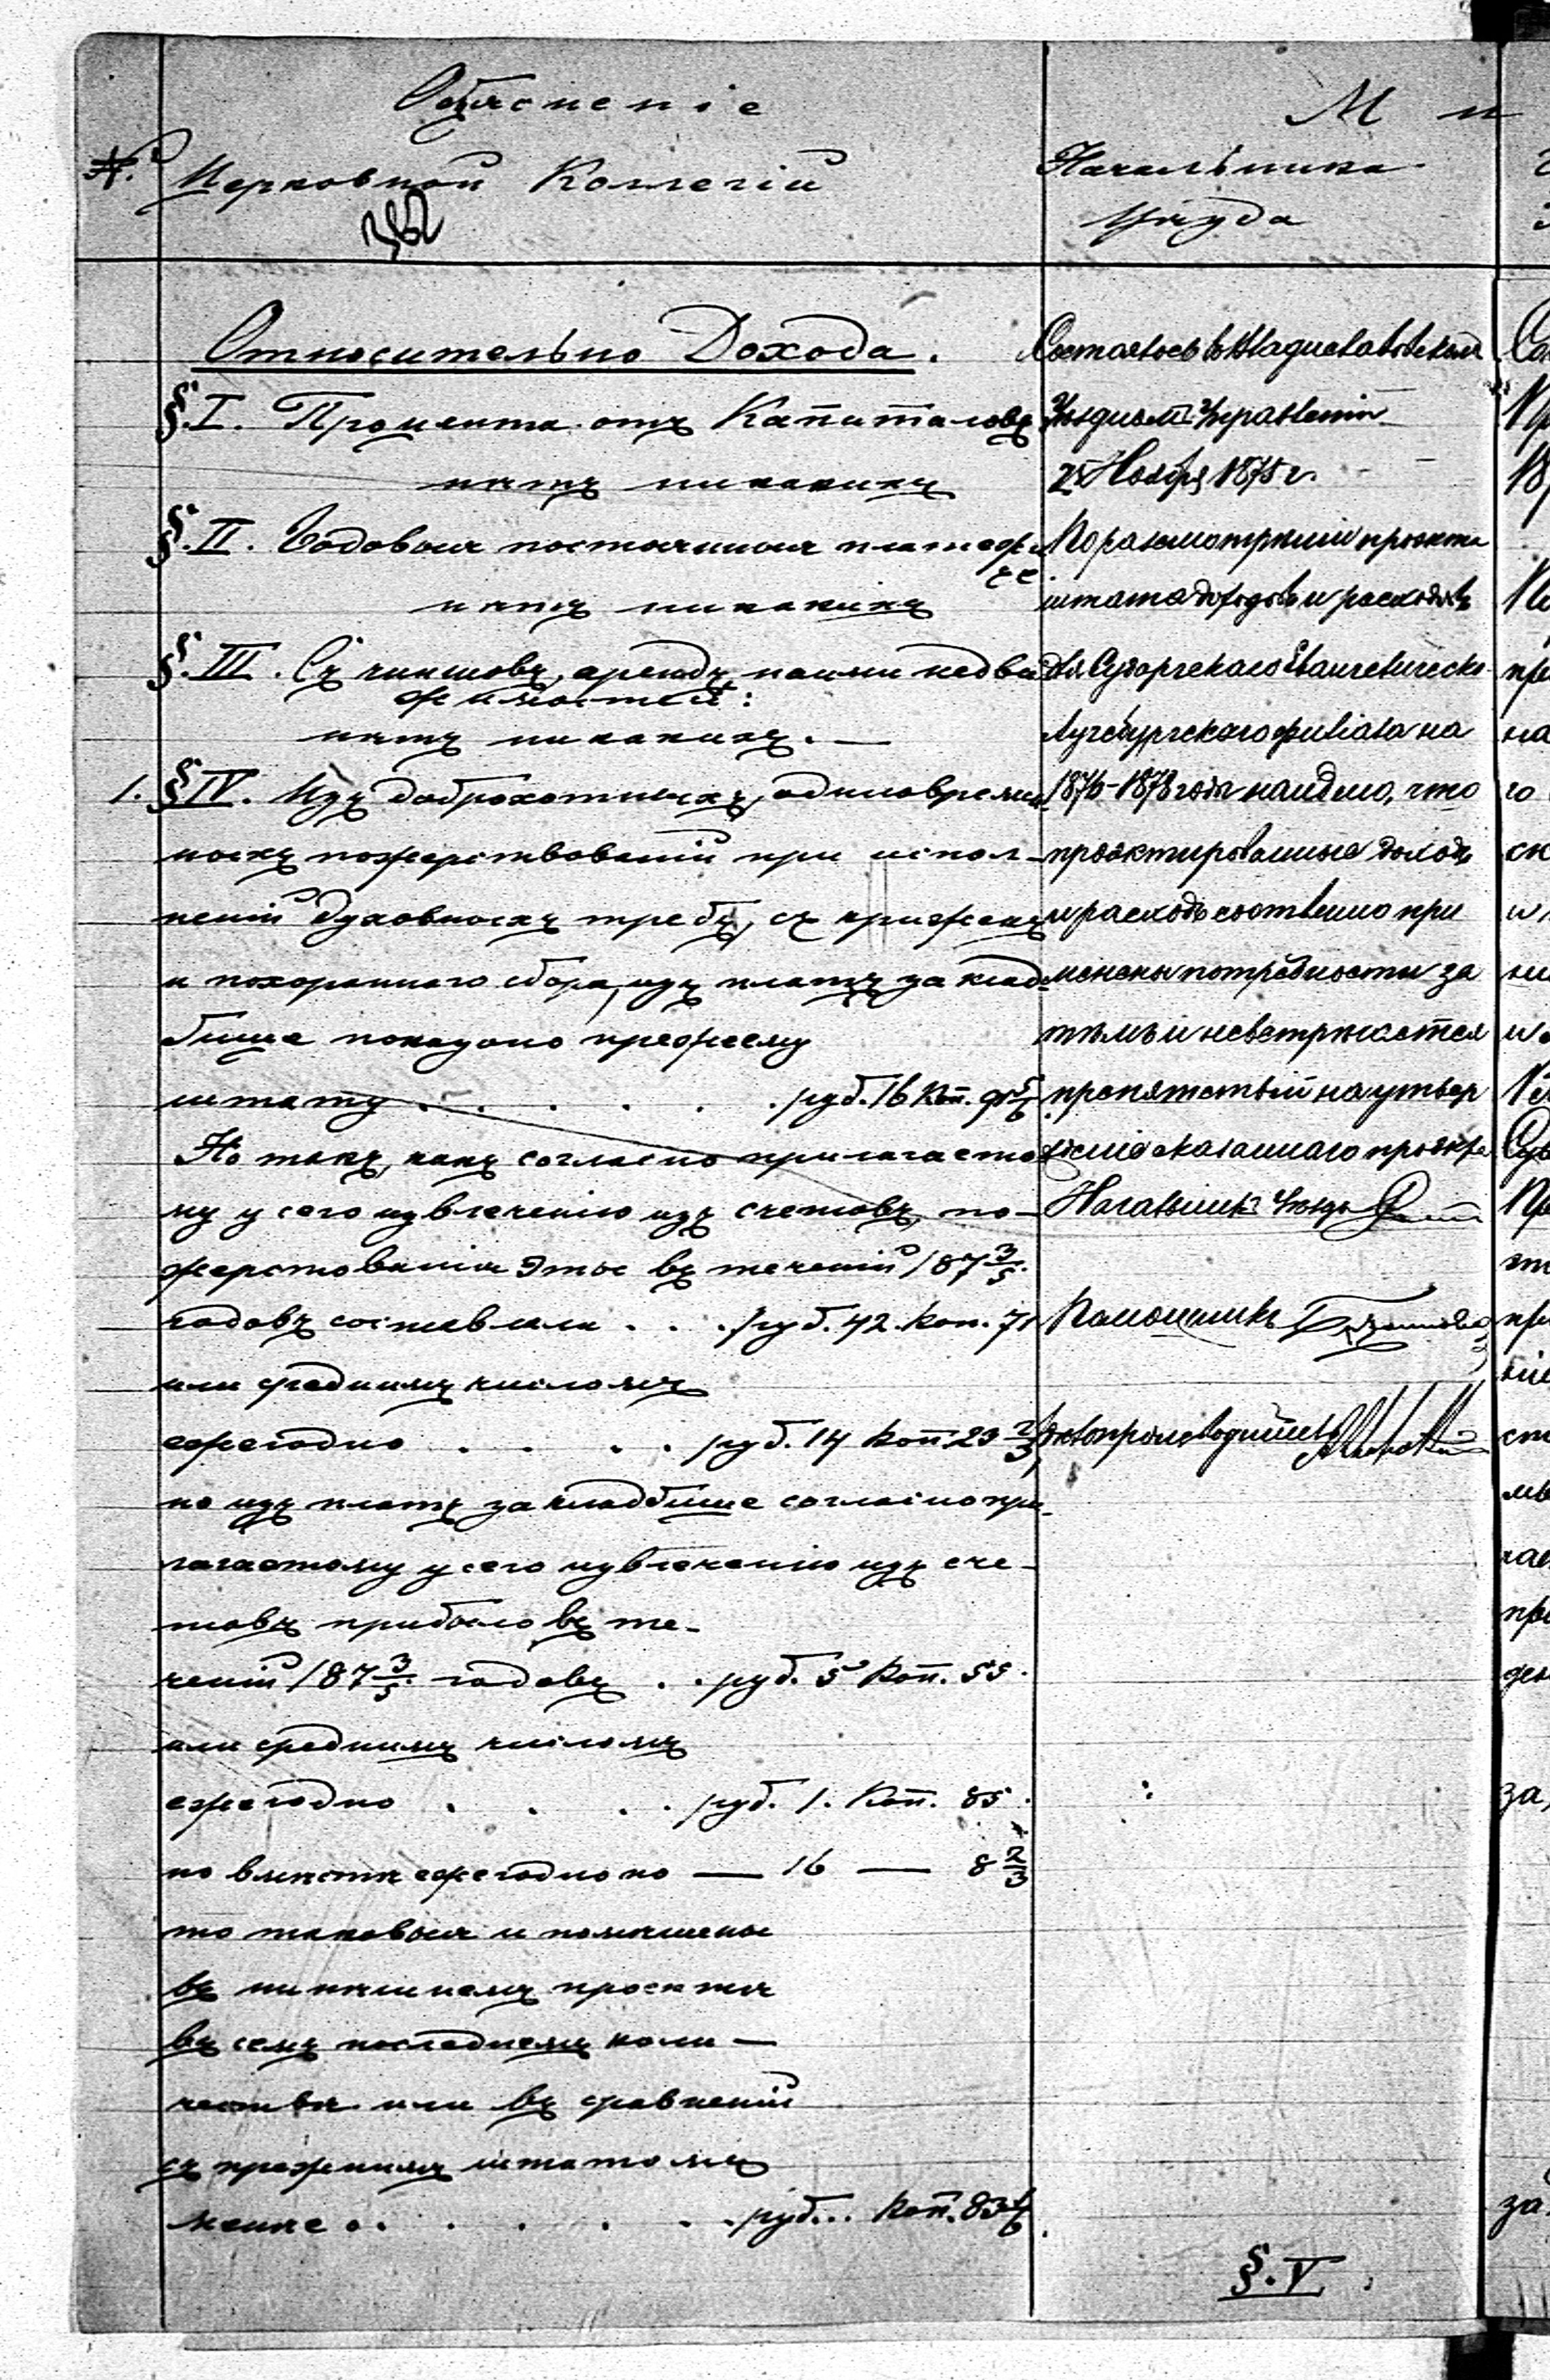 Объясненіе
№ Церковной Коллегіи
Относительно Дохода.
§.I. Процента отъ Капиталовъ
нѣтъ никакихъ
§.II. Годовыя постоянныя платежи
нѣтъ никакихъ
§.III. Съ чиншовъ, арендъ, наями недви
жимостей:
нѣтъ никакихъ. —
1. §IV. Изъ доброхотныхъ, одновремен
ныхъ пожертвованій при испол-
неніи духовныхъ требъ, съ кружекъ
и похороннаго сбора, изъ платъ за клад-
бище показано прежнему
штату . . . . . . руб. 16 Коп.
Но такъ, какъ согласно прилагаемо
му у сего извлеченію изъ счетовъ, по-
жертвованія Эты въ теченіи 187 3/5
годовъ составили . . . руб. 42. Коп. 71
или среднимъ числомъ
ежегодно . . . . руб. 14 Коп. 23 2/3
но изъ платъ за кладбище согласно при-
лагаемому у сего извлеченію изъ сче-
товъ прибыло въ те-
ченіи 187 3/5 годовъ . . руб. 5 Коп. 55.
или среднимъ числомъ
ежегодно . . . . руб. 1. Коп. 85.
но вмѣстѣ ежегодно по — 16 — 8 2/3
то таковыя и помѣщены
въ нинѣшнемъ проектѣ
въ семъ последнемъ коли —
чествѣ или въ сравненіи
съ прежнимъ штатомъ
менѣе . . . . . . руб... Коп. 83
М н
Начальника
Уѣзда
Состоялось въ Владиславовскомъ
Уѣздномъ Управленіи
25 Ноября 1875 г.
По разсмотрѣніи проэкта
штата доходовъ и расходовъ
для Сударгскаго Евангелическо-
Аугсбургскаго филіала на
1876-1878 года найдено, что
проэктированные доходы
и расходы соотвенно при
менены потребности за
тѣмъ и невстрѣчается
препятствій на утвер
жденіе сказаннаго проэкта
Начальникъ Уѣзда
Помощникъ
Дѣлопроизводитель
§.V.